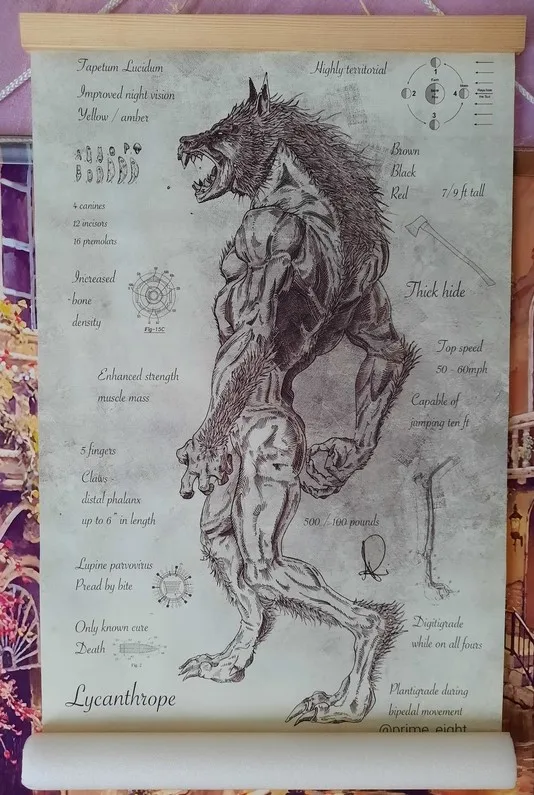 Tapetum Lucidum
Improved night vision
Yellow / amber
4 canines
12 incisors
16 premolars
Increased
bone
density
Fig-15C
Enhanced strength
muscle mass
5 fingers
Claws -
distal phalanx
up to 6" in length
Lupine parvovirus
Pread by bite
Only known cure
Death
Fig-2
Lycanthrope
Highly territorial
1
2
3
4
Brown
Black
Red
7/9 ft tall
Thick hide
Top speed
50 - 60mph
Capable of
jumping ten ft
500 / 100 pounds
Digitigrade
while on all fours
Plantigrade during
bipedal movement
@prime_eight